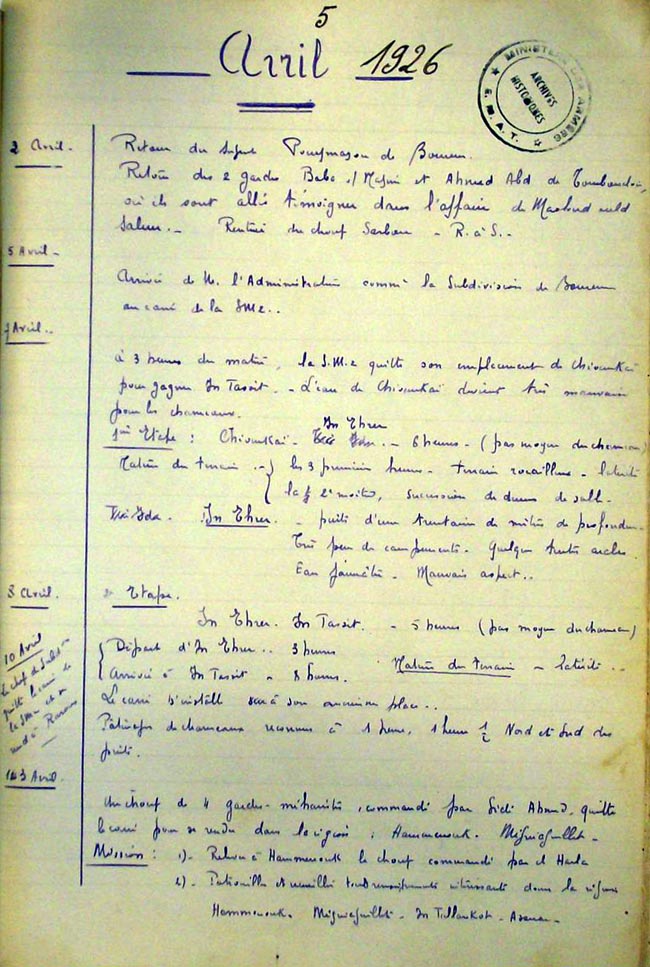 5
Avril 1926
MINISTERE DES ARMEES
ARCHIVES
HISTORIQUES
E. M. A. T.
2 Avril.
Retour du Sergent de Bourem.
Retour des 2 gardes Baba et Ahmed Abd de Tombouctou,
où ils sont allés témoigner dans l'affaire de ould
Salem. - Rentrée du chouf - R. à S. -
5 Avril -
Arrivée de M. l'Administrateur commt la Subdivision de Bourem
au carré de la SM2..
7 Avril..
à 3 heures du matin, la S.M.2 quitte son emplacement de Chivankai
pour gagner In Tassit. - L'eau de Chivankai devient très mauvaise
pour les chameaux.
In Ehrer
1ère Etape : Chivankai - - 6 heures - (pas moyen du chameau)
Nature du terrain .- les 3 premières heures - terrain rocailleux - latérite
la 2e moitié, succession de dunes de sable -
In Ehrer - puits d'une trentaine de mètres de profondeur
Très peu de campements - Quelques tentes
Eau jaunâtre - Mauvais aspect..
8 Avril.
2e Etape.
In Ehrer. In Tassit. - 5 heures (pas moyen du chameau)
Départ d'In Ehrer.. 3 heures
Nature du terrain - latérite ..
Arrivée à In Tassit - 8 heures.
10 Avril
Le chef de Subd on
quitte le carré de
la SM2 et se
rend à
Le carré s'installe à son ancienne place..
Pâturages de chameaux reconnus à 1 heure, 1 heure 1/2 Nord et Sud des
puits.
13 Avril.
Un chouf de 4 gardes-méharistes, commandé par Sidi Ahmed, quitte
le carré pour se rendre dans la région : Hammenouk. Miguiaguillet -
Mission : 1)- Relever à Hammenouk le chouf commandé par el
2)- Patrouiller et recueillir tous renseignements intéressants dans la région
Hammenouk. Miguiaguillet - In Tillankot -